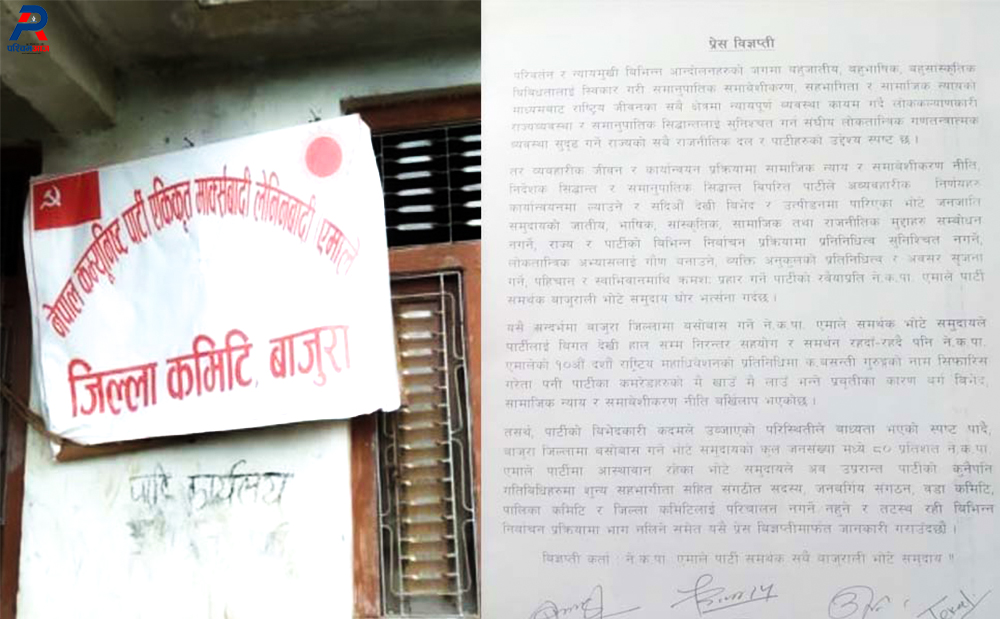 नेपाल कम्यूनिष्ट पार्टी एकिकृत मार्क्सबादी लेनिनबादी एमाले
जिल्ला कमिटि, बाजुरा
पार्टी कार्यालय
प्रेस विज्ञप्ती
परिवर्तन र न्यायमुखी विभिन्न आन्दोलनहरुको जगमा बहुजातीय, बहुभाषिक, बहुसांस्कृतिक
विविधतालाई स्विकार गरी समानुपातिक समावेशीकरण, सहभागिता र सामाजिक न्यायको
माध्यमबाट राष्ट्रिय जीवनका सबै क्षेत्रमा न्यायपूर्ण व्यवस्था कायम गर्दै लोककल्याणकारी
राज्यव्यवस्था र समानुपातिक सिद्धान्तलाई सुनिश्चत गर्न संघीय लोकतान्त्रिक गणतन्त्रात्मक
व्यवस्था सुदृढ गर्न राज्यको सबै राजनीतिक दल र पार्टीहरुको उद्देश्य स्पष्ट छ ।
तर व्यवहारीक जीवन र कार्यान्वयन प्रक्रियामा सामाजिक न्याय र समावेशीकरण नीति,
निर्देशक सिद्धान्त र समानुपातिक सिद्धान्त विपरित पार्टीले अव्यवहारीक निर्णयहरु
कार्यान्वयनमा ल्याउने र सदिऔं देखी विभेद र उत्पीडनमा पारिएका भोटे जनजाति
समुदायको जातीय, भाषिक, सांस्कृतिक, सामाजिक तथा राजनीतिक मुद्दाहरु सम्बोधन
नगर्ने, राज्य र पार्टीको विभिन्न निर्वाचन प्रक्रियामा प्रनिनिधित्व सुनिश्चित नगर्ने,
लोकतान्त्रिक अभ्यासलाई गौण बनाउने, व्यक्ति अनुकूलको प्रतिनिधित्व र अवसर सृजना
गर्ने, पहिचान र स्वाभिवानमाथि क्रमशः प्रहार गर्ने पार्टीको रवैयाप्रति ने.क.पा. एमाले पार्टी
समर्थक बाजुराली भोटे समुदाय घोर भर्त्सना गर्दछ ।
यसै सन्दर्भमा बाजुरा जिल्लामा बसोबास गर्ने ने.क.पा. एमाले समर्थक भोटे समुदायले
पार्टीलाई विगत देखी हाल सम्म निरन्तर सहयोग र समर्थन रहदाँ-रहदै पनि ने.क.पा.
एमालेको १०औं दशौं राष्ट्रिय महाधिवेशनको प्रतिनिधिमा क.बसन्ती गुरुङको नाम सिफारिस
गरेता पनी पार्टीका कमरेडहरुको मै खाउँ मै लाउँ भन्ने प्रवृतीका कारण वर्ग विभेद,
सामाजिक न्याय र समावेशीकरण नीति बर्खिलाप भएकोछ ।
तसर्थ, पार्टीको विभेदकारी कदमले उब्जाएको परिस्थितीले बाध्यता भएको स्पष्ट पार्दै,
बाजुरा जिल्लामा बसोबास गर्ने भोटे समुदायको कूल जनसंख्या मध्ये ८० प्रतिशत ने.क.पा.
एमाले पार्टीमा आस्थावान रहेका भोटे समुदायले अब उप्रान्त पार्टीको कुनैपनि
गतिविधिहरुमा शुन्य सहभागीता सहित संगठीत सदस्य, जनवर्गिय संगठन, वडा कमिटि,
पालिका कमिटि र जिल्ला कमिटिलाई परिचालन नगर्ने नहुने र तटस्थ रही विभिन्न
निर्वाचन प्रक्रियामा भाग नलिने समेत यसै प्रेस विज्ञप्तीमार्फत जानकारी गराउँदछौं ।
विज्ञप्ती कर्ता : ने.क.पा. एमाले पार्टी समर्थक सबै बाजुराली भोटे समुदाय ॥